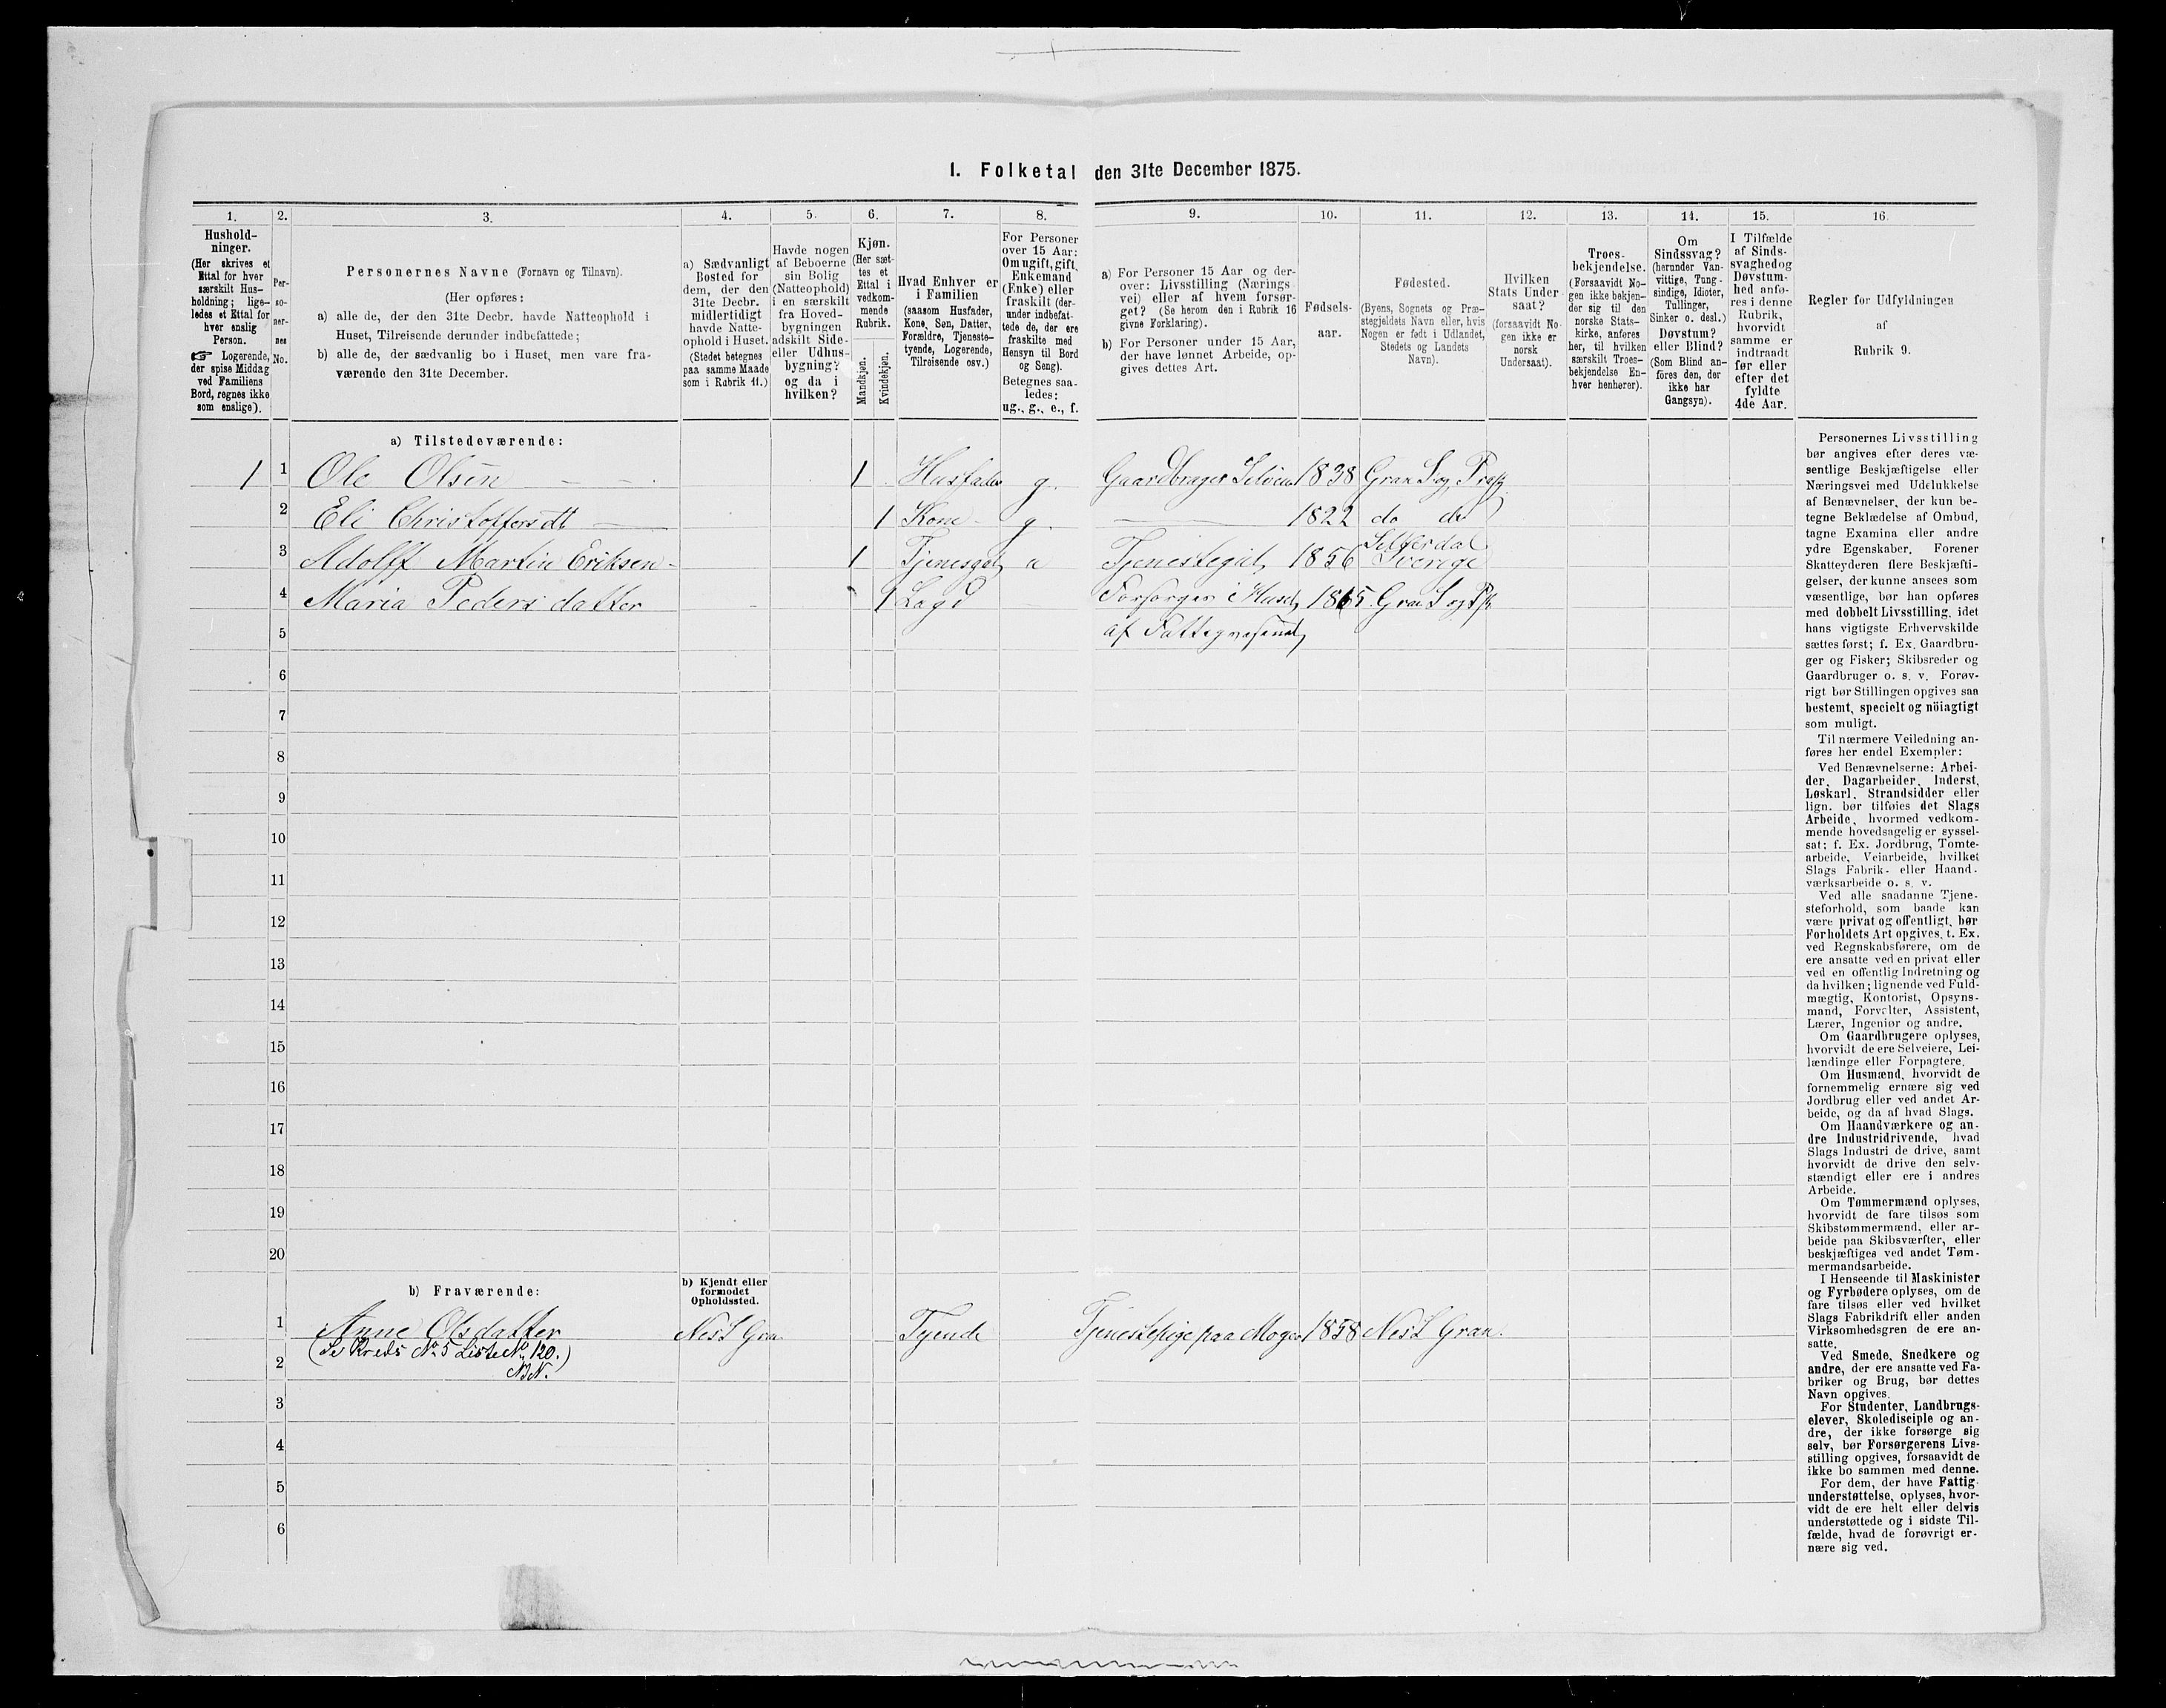 I. Folketal den 31te December 1875.
1. 2. 3. 4. 5. 6. 7. 8. 9. 10. 11. 12. 13. 14. 15. 16.
Hushold-
ninger.
(Her skrives et
Ettal for hver
særskilt Hus-
holdning; lige-
ledes et Ettal for
hver enslig
Person.
☞ Logerende,
der spise Middag
ved Familiens
Bord, regnes ikke
som enslige).
Per-
so-
ner-
nes
No.
Personernes Navne (Fornavn og Tilnavn).
(Her opføres:
a) alle de, der den 31te Decbr. havde Natteophold i
Huset, Tilreisende derunder indbefattede;
b) alle de, der sædvanlig bo i Huset, men vare fra-
værende den 31te December.
a) Sædvanligt
Bosted for
dem, der den
31te Decbr.
midlertidigt
havde Natte-
ophold i Huset.
(Stedet betegnes
paa samme Maade
som i Rubrik 11.)
Havde nogen
af Beboerne
sin Bolig
(Natteophold)
i en særskilt
fra Hoved-
bygningen
adskilt Side-
eller Udhus-
bygning?
og da i
hvilken?
Kjøn.
(Her sæt-
tes et
Ettal i
vedkom-
mende
Rubrik.
Mandkjøn.
Kvindekjøn.
Hvad Enhver er
i Familien
(saasom Husfader,
Kone, Søn, Datter,
Forældre, Tjeneste-
tyende, Logerende,
Tilreisende osv.)
For Personer
over 15 Aar:
Om ugift, gift,
Enkemand
(Enke) eller
fraskilt (der-
under indbefat-
tede de, der ere
fraskilte med
Hensyn til Bord
og Seng).
Betegnes saa-
ledes:
ug., g., e., f.
a) For Personer 15 Aar og der-
over: Livsstilling (Nærings
vei) eller af hvem forsør-
get? (Se herom den i Rubrik 16
givne Forklaring).
b) For Personer under 15 Aar,
der have lønnet Arbeide, op-
gives dettes Art.
Fødsels-
aar.
Fødested.
(Byens, Sognets og Præ-
stegjeldets Navn eller, hvis
Nogen er født i Udlandet,
Stedets og Landets
Navn).
Hvilken
Stats Under
saat?
(forsaavidt No-
gen ikke er
norsk
Undersaat).
Troes-
bekjendelse.
(Forsaavidt No-
gen ikke bekjen-
der sig til den
norske Stats-
kirke, anføres
her, til hvilken
særskilt Troes-
bekjendelse En-
hver henhører).
Om
Sindssvag?
(herunder Van-
vittige, Tung-
sindige, Idioter,
Tullinger,
Sinker o. desl.)
Døvstum?
eller Blind?
(Som Blind an-
føres den, der
ikke har
Gangsyn).
I Tilfælde
af Sinds-
svaghed og
Døvstum-
hed anfø-
res i denne
Rubrik,
hvorvidt
samme er
indtraadt
før eller
efter det
fyldte
4de Aar.
Regler for Udfyldningen
af
Rubrik 9.
a) Tilstedeværende:
1 1 Ole Olsen 1 Husfader g. Gaardbruger 1838 Gran S og
2 Eli Christoffersdt 1 Kone g. 1822 do do
3 Adolff Martin Eriksen 1 u 1856 Sverige
4 Maria Pedersdatter 1 Lagd 1865 Gran S og
5 af
6
7
8
9
10
11
12
13
14
15
16
17
18
19
20
b) Fraværende:
b) Kjendt eller
formodet
Opholdssted.
1 Anne Olsdatter Nes S Gran Tyende Tjenestepige paa 1858 Nes S Gran.
(Se Kreds No 5 Liste No 120.)
2
3
4
5
6
Personernes Livsstilling
bør angives efter deres væ-
sentlige Beskjæftigelse eller
Næringsvei med Udelukkelse
af Benævnelser, der kun be-
tegne Beklædelse af Ombud,
tagne Examina eller andre
ydre Egenskaber. Forener
Skatteyderen flere Beskjæfti-
gelser, der kunne ansees som
væsentlige, bør han opføres
med dobbelt Livsstilling, idet
hans vigtigste Erhvervskilde
sættes først; f. Ex. Gaardbru-
ger og Fisker; Skibsreder og
Gaardbruger o. s. v. Forøv-
rigt bør Stillingen opgives saa
bestemt, specielt og nöiagtigt
som muligt.
Til nærmere Veiledning an-
føres her endel Exempler:
Ved Benævnelserne: Arbei-
der, Dagarbeider, Inderst,
Løskarl, Strandsidder eller
lign. bør tilføies det Slags
Arbeide, hvormed vedkom-
mende hovedsagelig er syssel-
sat; f. Ex. Jordbrug, Tomte-
arbeide, Veiarbeide, hvilket
Slags Fabrik- eller Haand-
værksarbeide o. s. v.
Ved alle saadanne Tjene-
steforhold, som baade kan
være privat og offentligt, bør
Forholdets Art opgives, t. Ex.
ved Regnskabsførere, om de
ere ansatte ved en privat eller
ved en offentlig Indretning og
da hvilken; lignende ved Fuld-
mægtig, Kontorist, Opsyns-
mand, Forvalter, Assistent,
Lærer, Ingeniør og andre.
Om Gaardbrugere oplyses,
hvorvidt de ere Selveiere, Lei-
lændinge eller Forpagtere.
Om Husmænd, hvorvidt de
fornemmelig ernære sig ved
Jordbrug eller ved andet Ar-
beide, og da af hvad Slags.
Om Haandværkere og an-
dre Industridrivende, hvad
Slags Industri de drive, samt
hvorvidt de drive den selv-
stændigt eller ere i andres
Arbeide.
Om Tømmermænd oplyses,
hvorvidt de fare tilsøs som
Skibstømmermænd, eller ar-
beide paa Skibsværfter, eller
beskjæftiges ved andet Tøm-
mermandsarbeide.
I Henseende til Maskinister
og Fyrbødere oplyses, om de
fare tilsøs eller ved hvilket
Slags Fabrikdrift eller anden
Virksomhedsgren de ere an-
satte.
Ved Smede, Snedkere og
andre, der ere ansatte ved Fa-
briker og Brug, bør dettes
Navn opgives.
For Studenter, Landbrugs-
elever, Skoledisciple og an-
dre, der ikke forsørge sig
selv, bør Forsørgerens Livs-
stilling opgives, forsaavidt de
ikke bo sammen med denne.
For dem, der have Fattig-
understøttelse, oplyses, hvor-
vidt de ere helt eller delvis
understøttede og i sidste Til-
fælde, hvad de forøvrigt er-
nære sig ved.